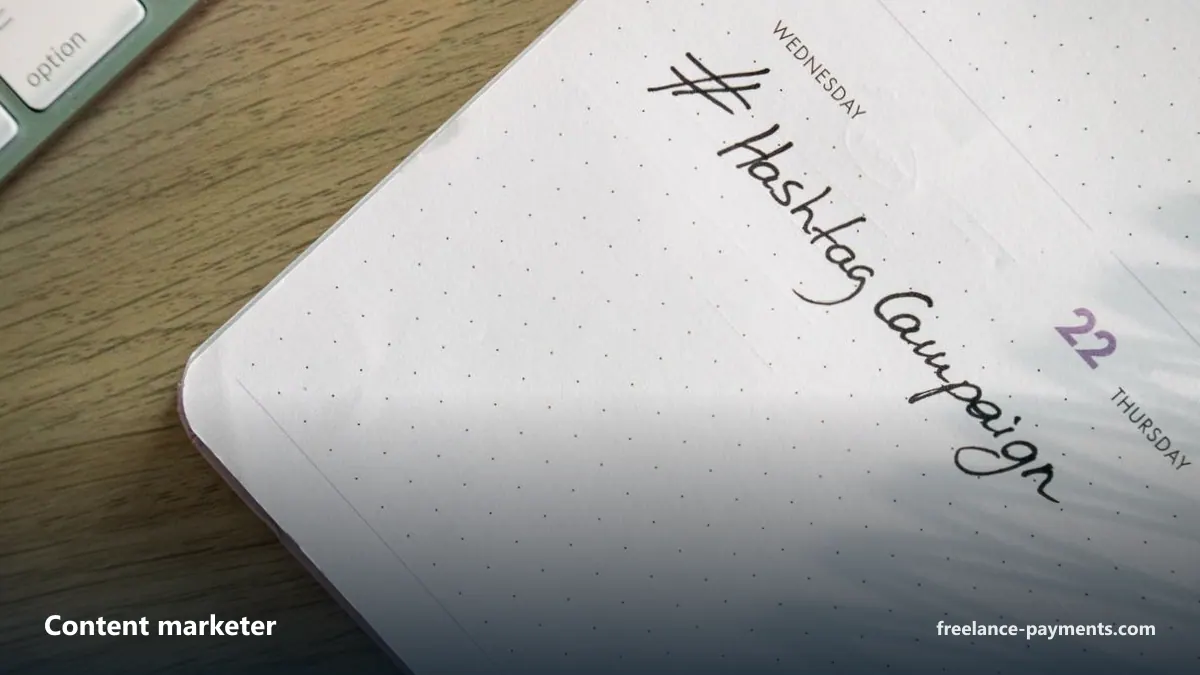 option
WEDNESDAY
# Hashtag Campaign
22
THURSDAY
Content marketer
freelance-payments.com